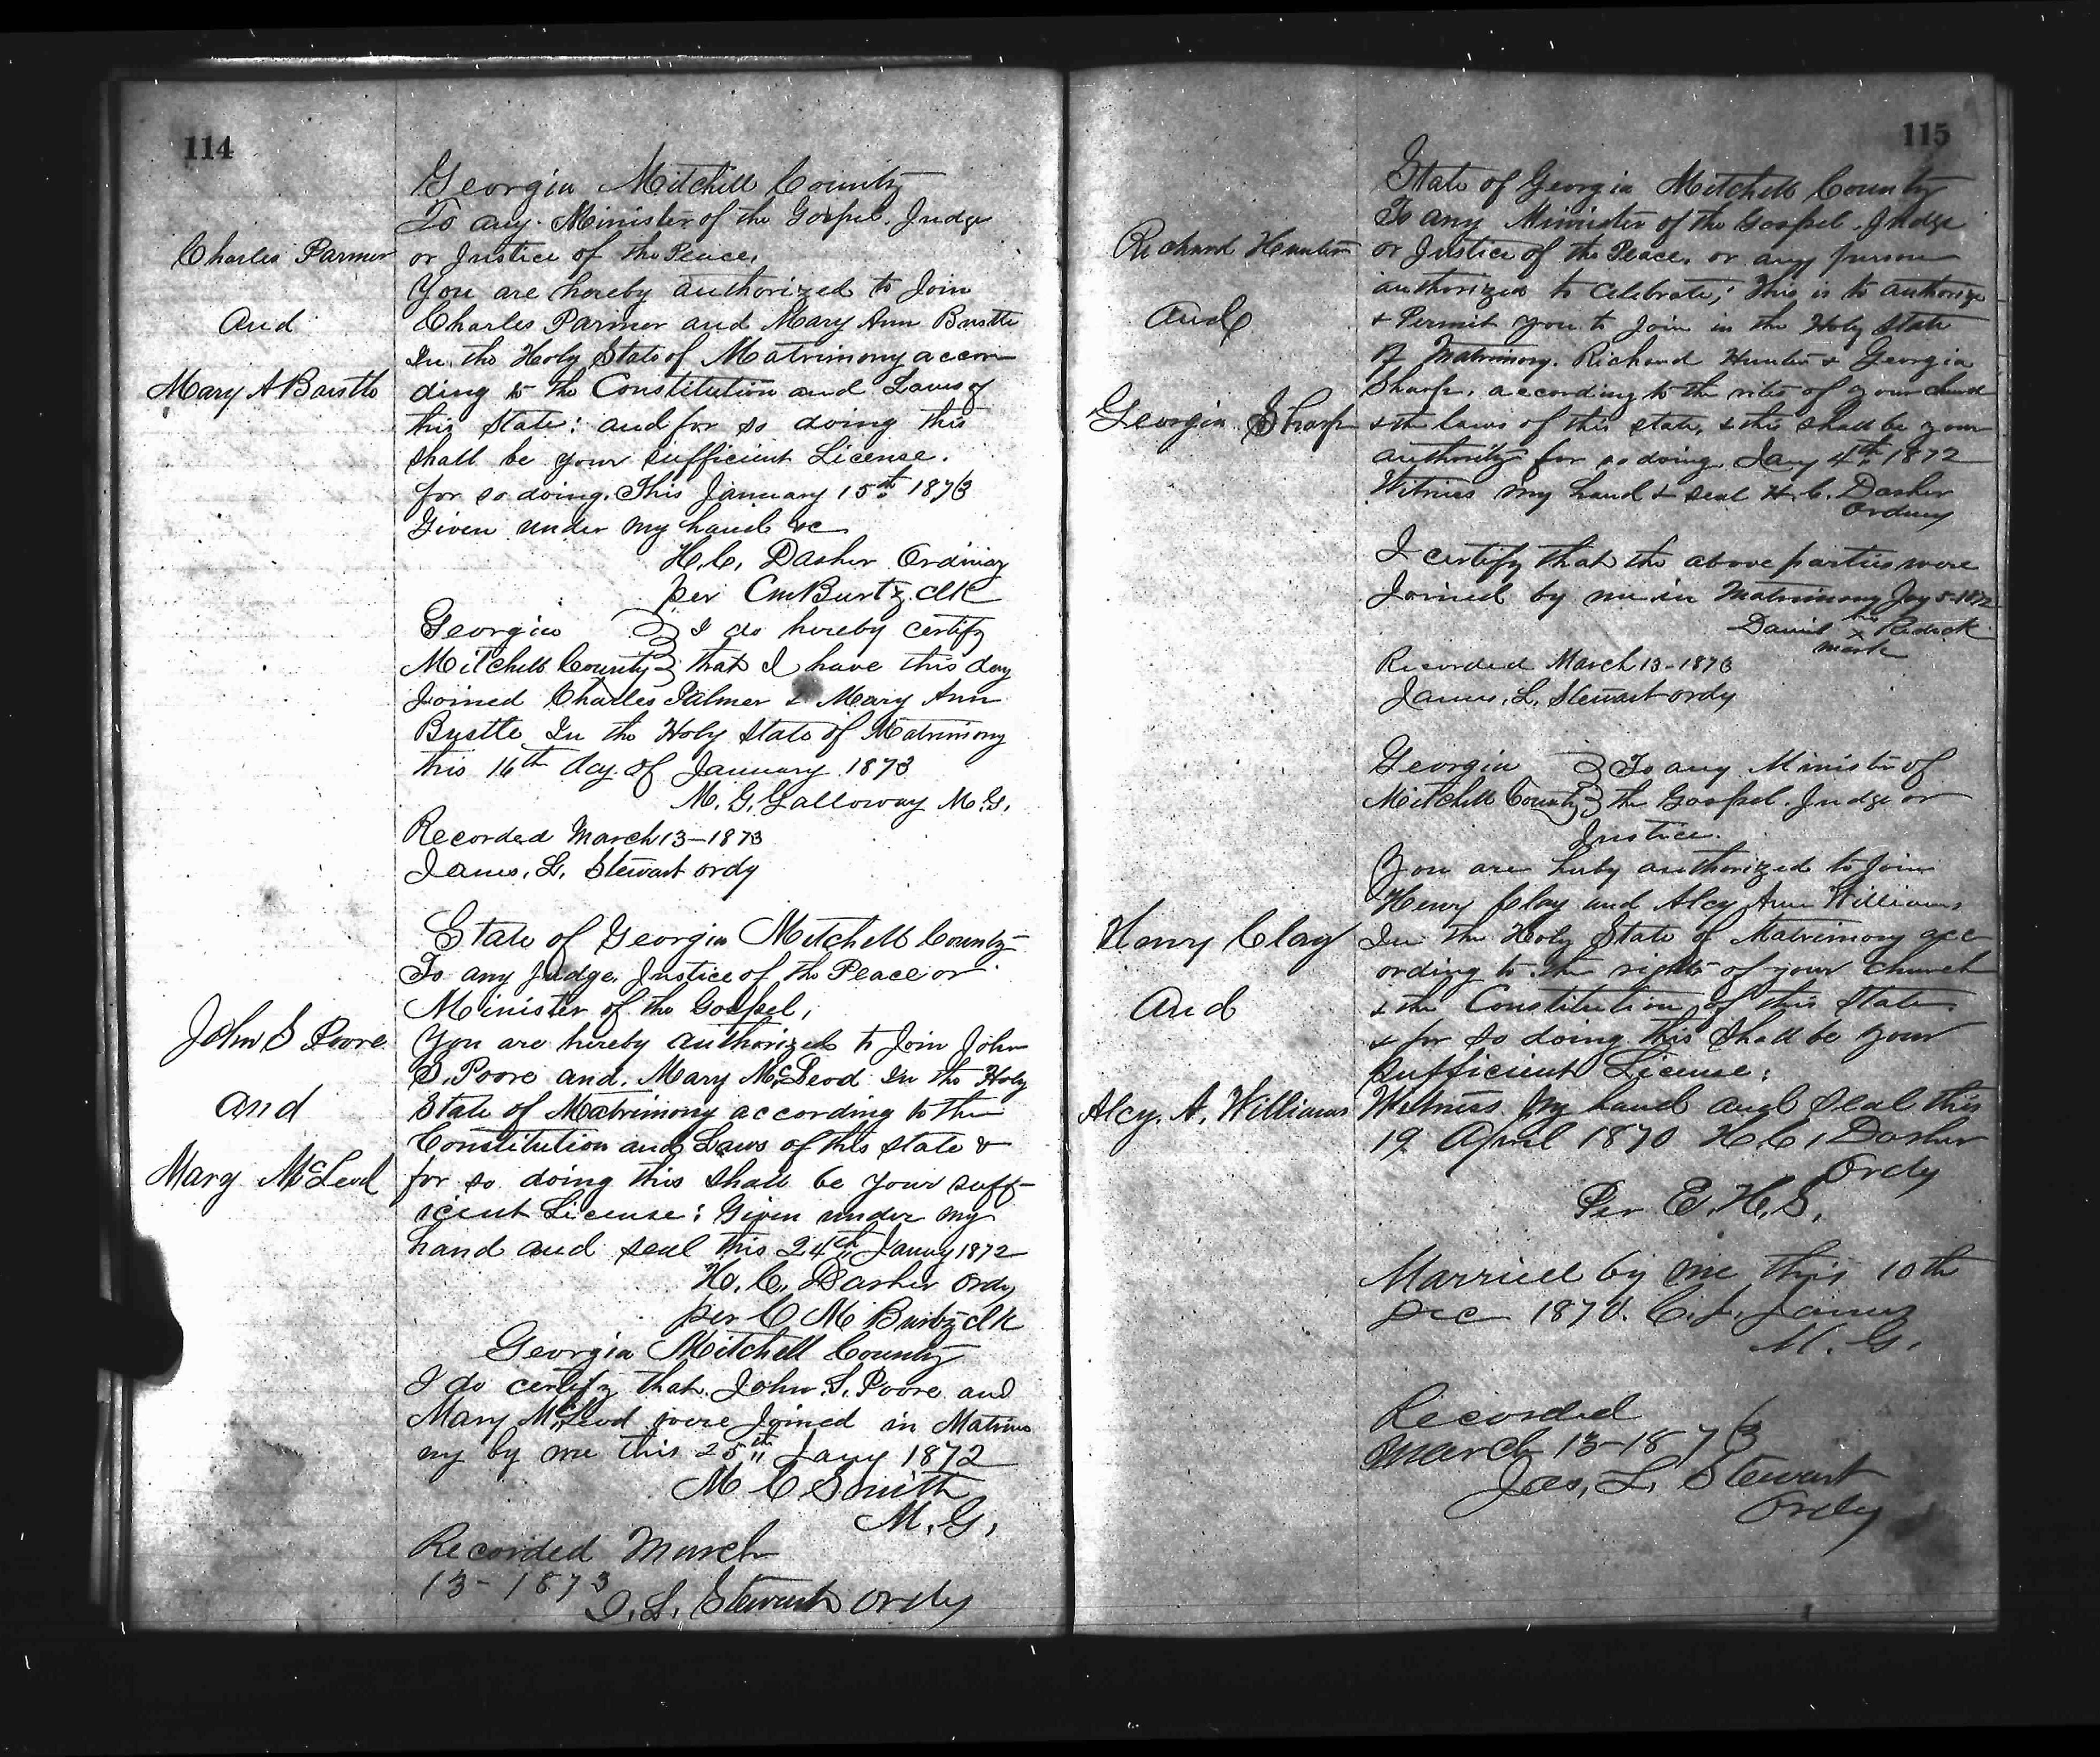 114
Georgia Mitchell County
To any Minister of the Gospel, Judge
Charles Parmer
or Justice of the Peace,
You are hereby authorized to Join
And
Charles Parmer and Mary Ann Bustle
In the Holy State of Matrimony accor
Mary A Bustle
ding to the Constitution and Laws of
this State: and for so doing this
shall be your sufficient License.
for so doing. This January 15th 1873
Given under my hand &c
H. C. Dasher Ordinay
per CM Burtz clk
Georgia } I do hereby certify
Mitchell County } that I have this day
Joined Charles Palmer & Mary Ann
Bustle In the Holy State of Matrimony
this 16th day of January 1873
M. G. Galloway M.G.
Recorded March 13-1873
James. L. Stewart ordy
State of Georgia Mitchell County
To any Judge, Justice of the Peace or
Minister of the Gospel,
John S Poore
You are hereby authorized to Join John
S. Poore and. Mary McLeod In the Holy
And
State of Matrimony according to the
Constitution and Laws of this State &
Mary McLeod
for so doing this shall be your suffi
cient License: Given under my
hand and seal this 24th Janny 1872
H. C. Dasher Ordy
per C M Burtz clk
Georgia Mitchell County
I do certify that John S. Poore and
Mary McLeod were Joined in Matrimo
ny by me this 25th Jany 1872
M C Smith
M. G.
Recorded March
13-1873
J. L. Stewart Ordy
115
State of Georgia Mitchell County
To any Minister of the Gospel. Judge
Richard Hunter
or Justice of the Peace, or any person
authorized to celebrate; This is to authorize
And
& Permit you to Join in the Holy State
of Matrimony. Richard Hunter & Georgia
Sharp, according to the rites of your church
Georgia Sharp
& the laws of this state, & this shall be your
authority for so doing Jany 4th 1872
Witness my hand & seal H. C. Dasher
Ordiny
I certify that the above parties were
Joined by me in Matrimony Jny 5-1872
his
Daniel x Redick
mark
Recorded March 13-1873
James. L. Stewart ordy
Georgia } To any Minister of
Mitchell County } the Gospel. Judge or
Justice.
You are herby authorized to Join
Henry Clay and Alcy Ann Williams
Henry Clay
In the Holy State of Matrimony acc
ording to the rights of your Church
And
& the Constitution of this State.
& for so doing this Shall be your
sufficient License:
Alcy. A. Williams
Witness My hand and seal this
19 April 1870 H. C. Dasher
Ordy
Per E. H. S.
Married by me this 10th
Dec 1870. C. J. James
M. G.
Recorded
March 13-1873
Jas, L. Stewart
Ordy